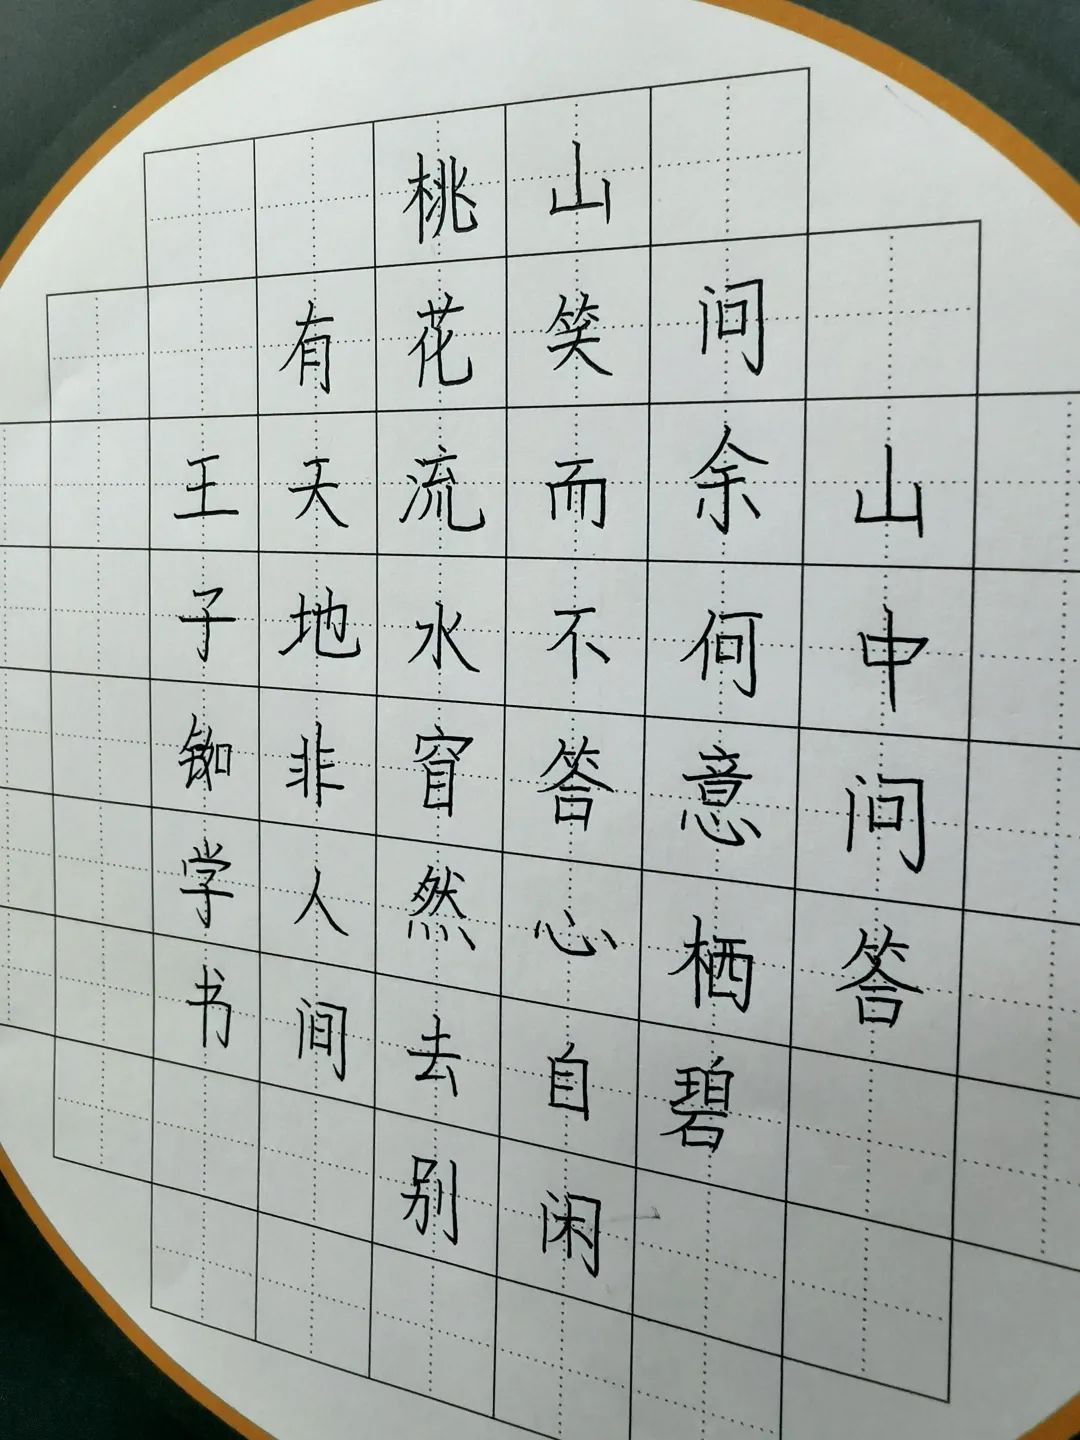 山中问答
问余何意栖碧
山笑而不答心自闲
桃花流水窅然去别
有天地非人间
王子铷学书